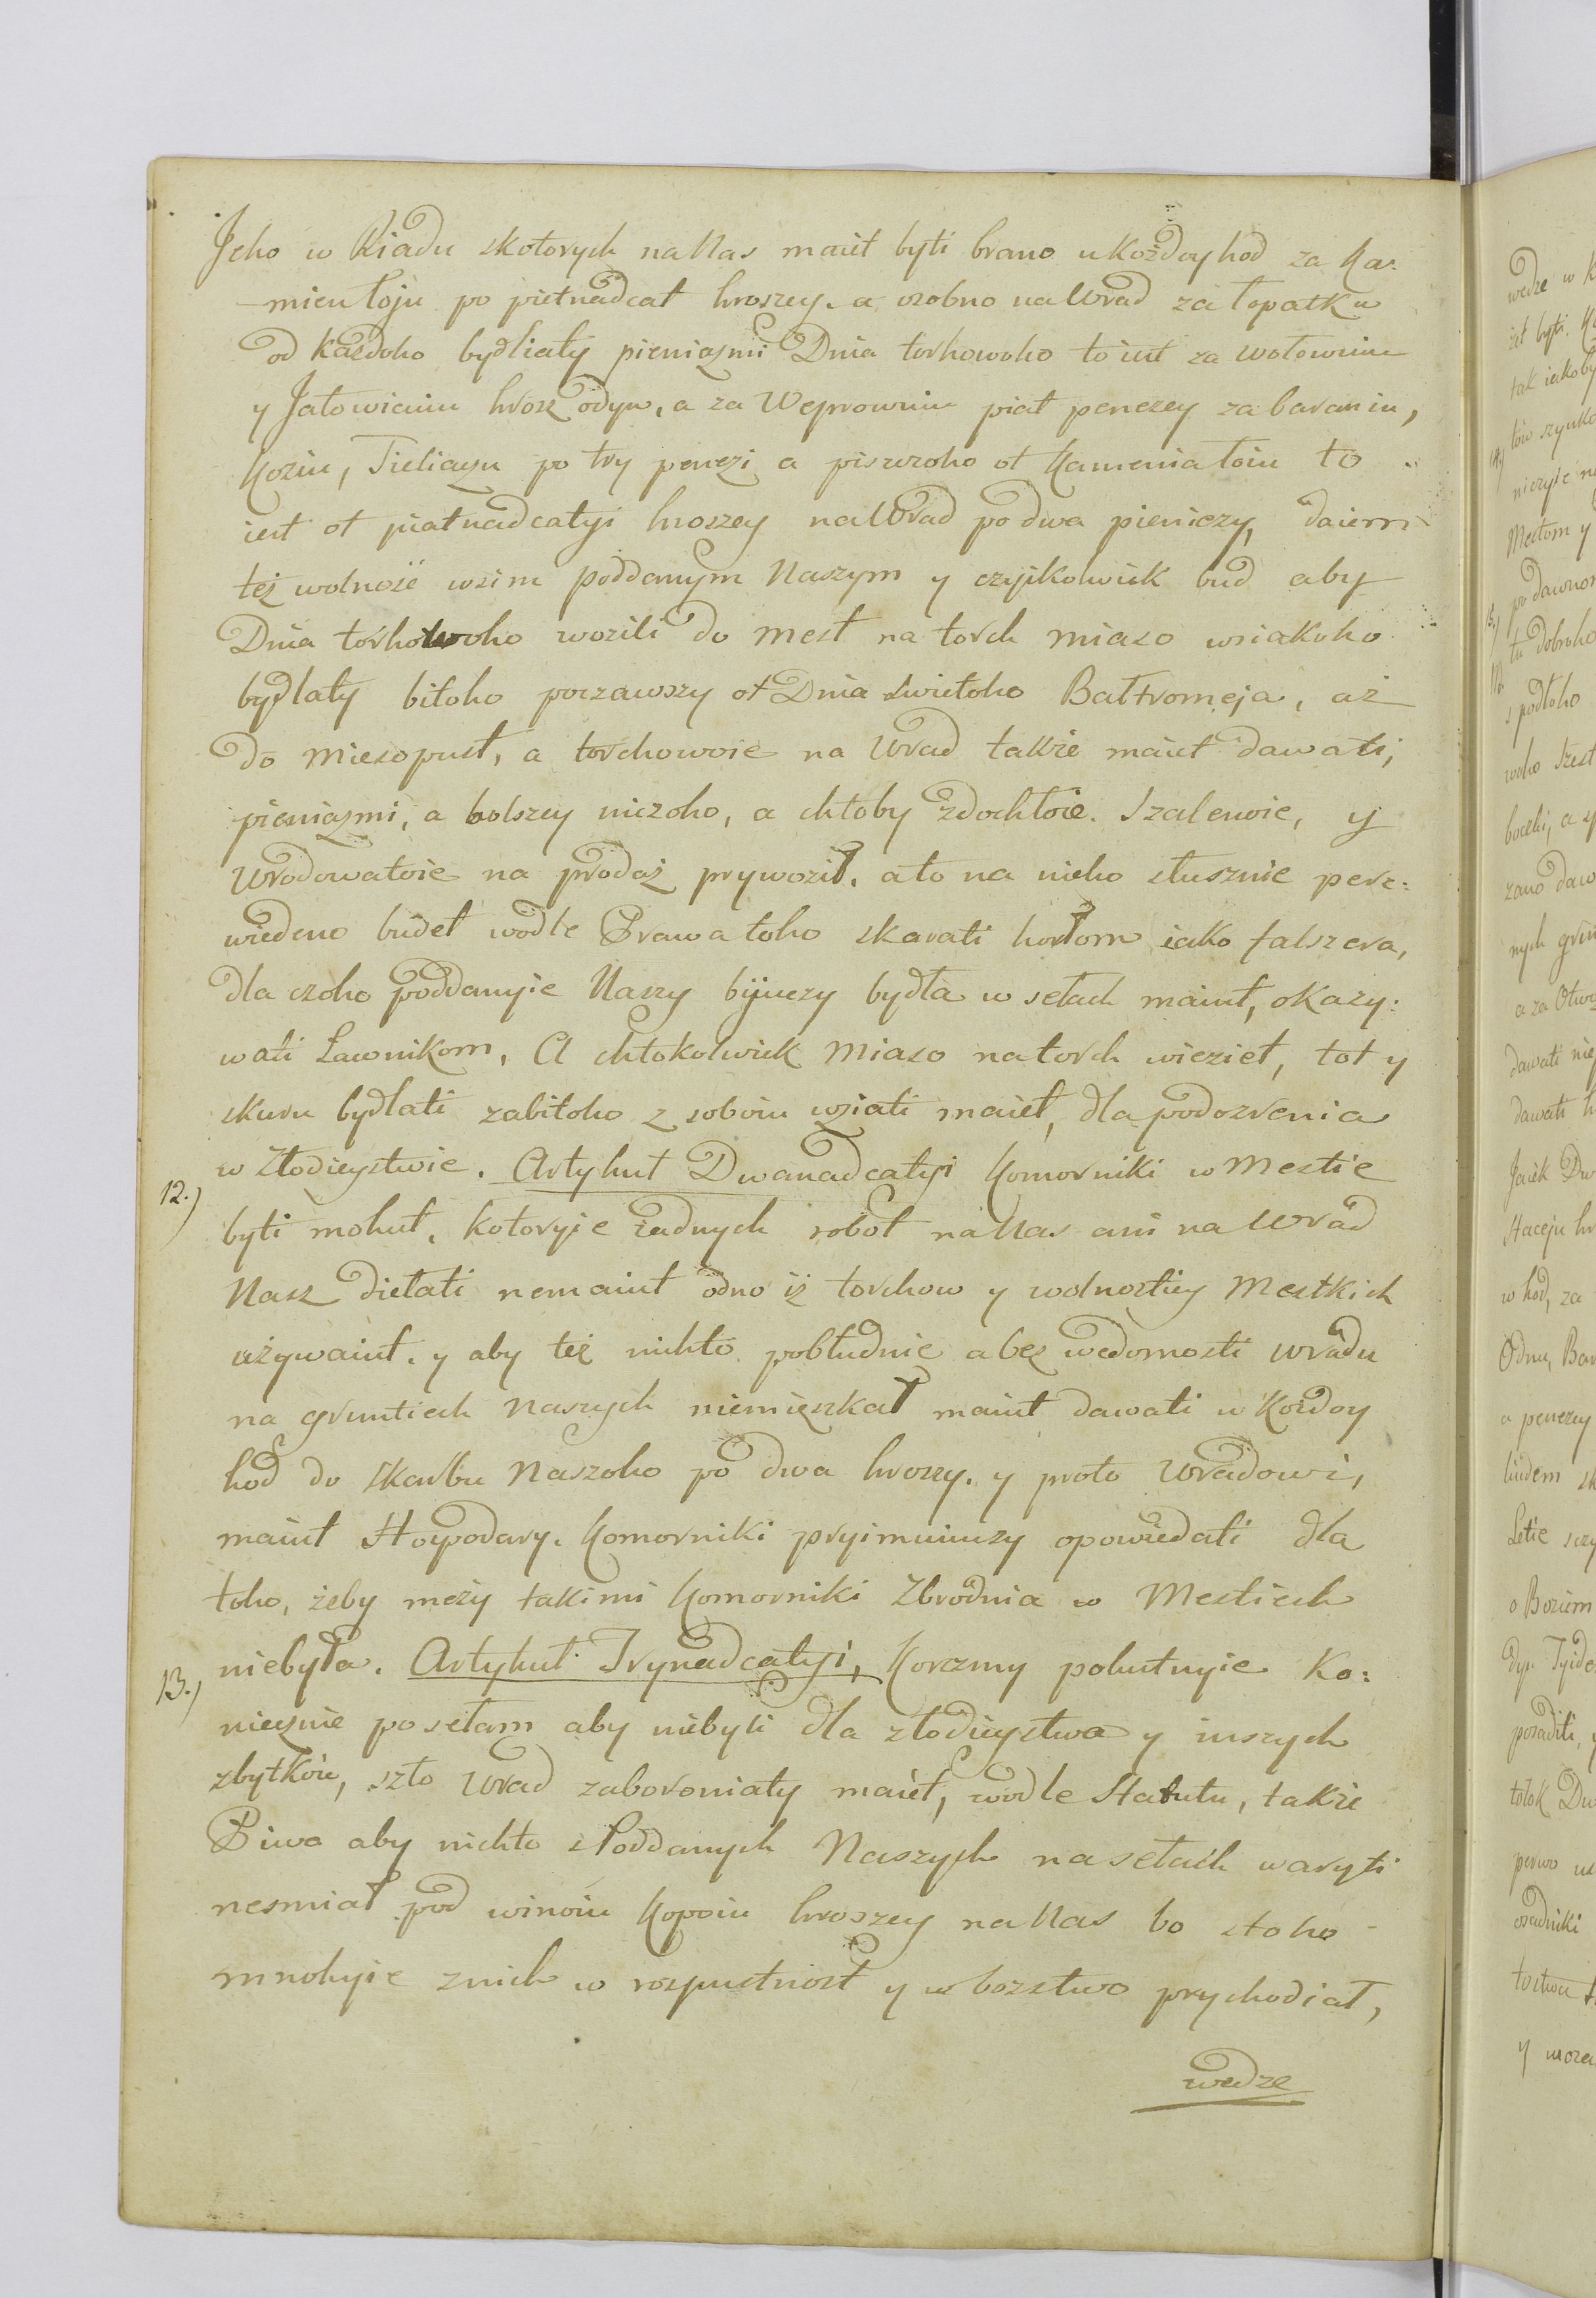 Jeho w Riadu skotorych na Nas maiut byti brano u Kożdoy hod za Ka:
mien łoju po pietnadcat hroszey. a osobno na Wrad za łopatku
od każdoho bydliaty pieniazmi Dnia torhowoho to iest za wołowiniu
y Jałowiciniu hrosz odyn, a za Weprowiniu piat penezey za baraniu,
Koziu, Tieliazu po try penezi a piszczoho ot Kamenia łoiu to
iest ot piatnadcatyi hroszey na Wrad po dwa pieniezy, daiem
też wolnosć wsim poddanym Naszym y czyjikolwiek bud aby
Dnia torhowoho wozili do mest na torch miaso wsiakoho
bydlaty bitoho poczawszy ot Dnia swietoho Bałtromeja, aż
do miesopust, a torchowoie na Wrad także maiut dawati,
pieniazmi, a bolszey niczoho, a chtoby zdochłoie. Szalenoie, y
Wrodowatoie na prodaż prywoził. a to na nieho słusznie pere:
wiedeno budet wodle Prawa toho skarati horłom iako falszera,
dla czoho poddanyie Naszy bijuczy bydła w sełach maiut, okazy:
wati Ławnikom. A chtokolwiek miaso na torch wieziet, tot y
skuru bydlati zabitoho z soboiu wziati maiet, dla podozrenia
w Złodieystwie. Artykuł Dwanadcatyi Komorniki w Mestie
12.)
byti mohut, kotoryie żadnych robot na Nas ani na Wrad
Nasz diełati nemaiut odno iż torchow y wolnostiey Mestkich
używaiut. y aby też nichto pobłudnie a bez wedomosti wradu
na gruntiech Naszych niemieszkał maiut dawati w Kożdoy
hod do skarbu Naszoho po dwa hroszy. y proto Wradowi,
maiut Hospodary. Komorniki pryimuiuczy opowiedati dla
toho, żeby meży takimi Komorniki Zbrodnia w Mestiech
niebyła. Artykuł Trynadcatyi, Korczmy pokutnyie Ko:
13.)
niecznie po sełam aby niebyli dla złodieystwa y inszych
zbytkow, szto Wrad zaboroniaty maiet, wodle Statutu, także
Piwa aby nichto z Poddanych Naszych na sełach waryti
nesmiał pod winoiu Kopoiu hroszey na Nas bo stoho
mnohyie z nich w rozpustnost y w bozstwo prychodiat,
wedze